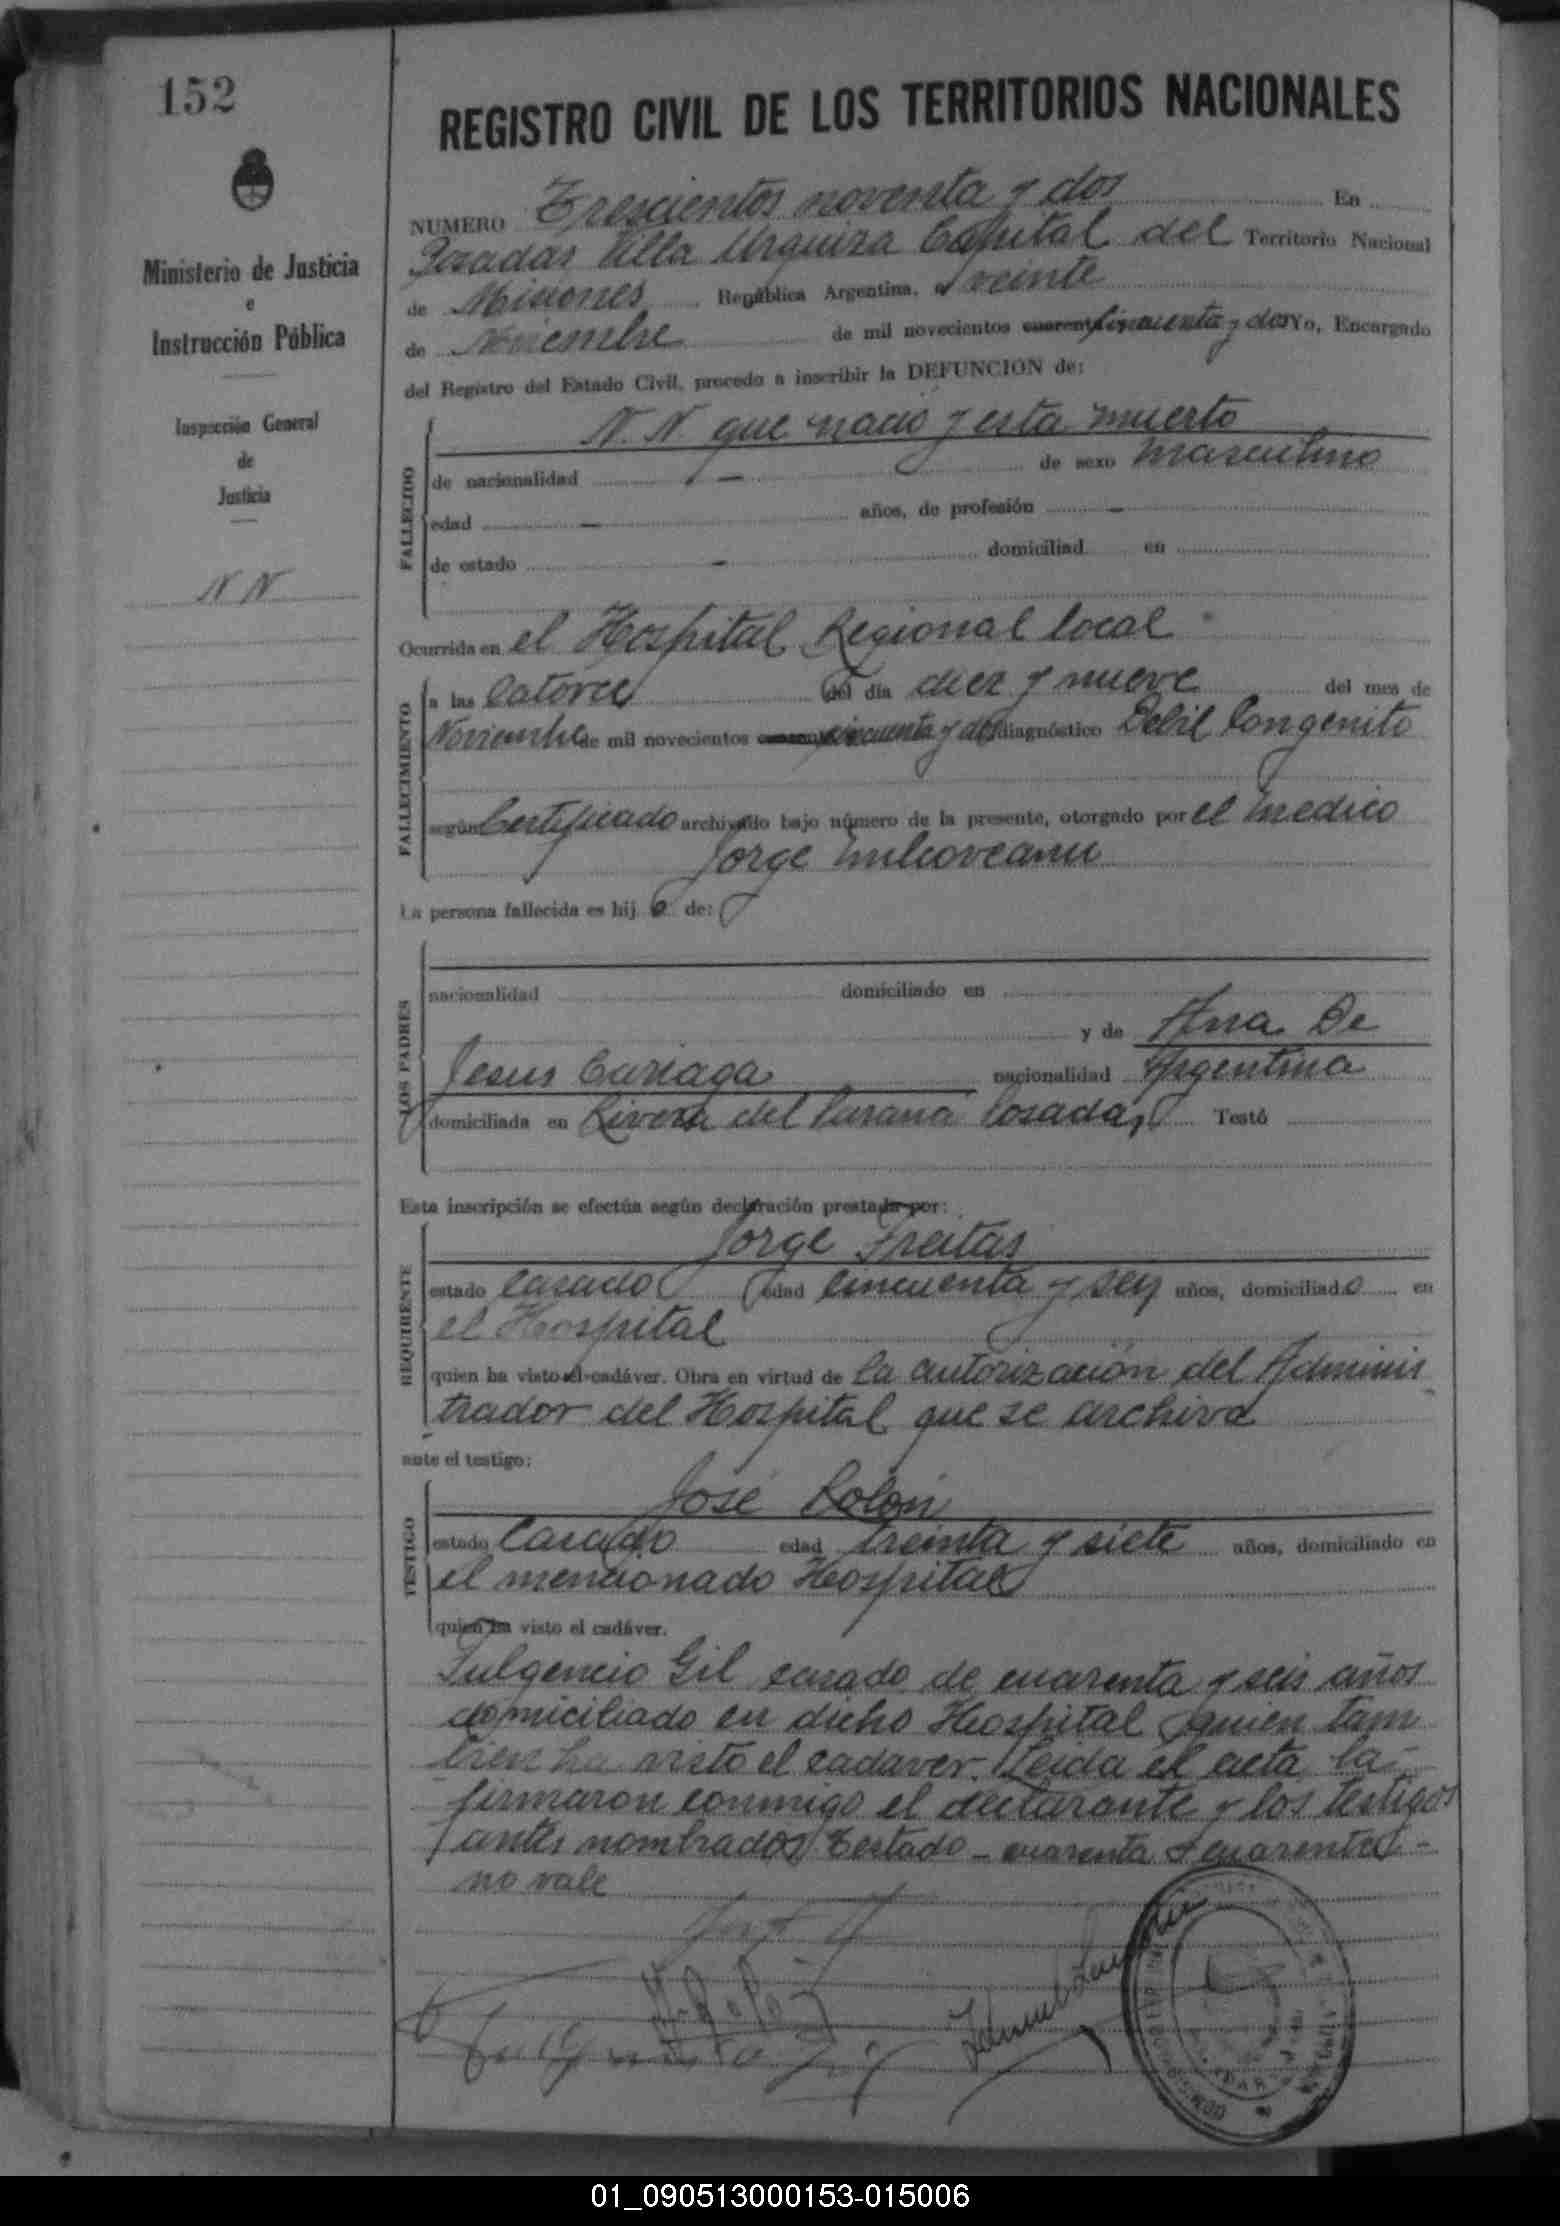 152
Ministerio de Justicia
e
Instrucción Pública
Inspección General
de
Justicia
N N
REGISTRO CIVIL DE LOS TERRITORIOS NACIONALES
NUMERO Trescientos noventa y dos En
Posadas Villa Urquiza Capital del Territorio Nacional
de Misiones República Argentina, a veinte
de Noviembre de mil novecientos cuarenta cincuenta y dos Yo, Encargado
del Registro del Estado Civil, procedo a inscribir la DEFUNCION de:
FALLECIDO
N. N. que nació y esta muerto
de nacionalidad — de sexo masculino
edad — años, de profesión —
de estado — domiciliad en
Ocurrida en el Hospital Regional local
FALLECIMIENTO
a las Catorce del día diez y nueve del mes de
Noviembre de mil novecientos cincuenta y dos diagnóstico Debil Congenito
según Certificado archivado bajo número de la presente, otorgado por el medico
Jorge
La persona fallecida es hij o de:
LOS PADRES
nacionalidad domiciliado en
y de Ana De
Jesus Cariaga nacionalidad Argentina
domiciliada en Rivera del Parana Posadas Testó
Esta inscripción se efectúa según declaración prestada por:
REQUIRENTE
Jorge Freitas
estado Casado edad Cincuenta y seis años, domiciliado en
el Hospital
quien ha visto el cadáver. Obra en virtud de la autorización del Adminis
trador del Hospital que se archiva
ante el testigo:
TESTIGO
José Rolón
estado Casado edad treinta y siete años, domiciliado en
el mencionado Hospital
quien ha visto el cadáver.
Fulgencio Gil casado de cuarenta y seis años
domiciliado en dicho Hospital quien tam
bien ha visto el cadaver. Leida el acta la
firmaron conmigo el declarante y los testigos
antes nombrados Testado — cuarenta cuarenta —
no vale
01_090513000153-015006